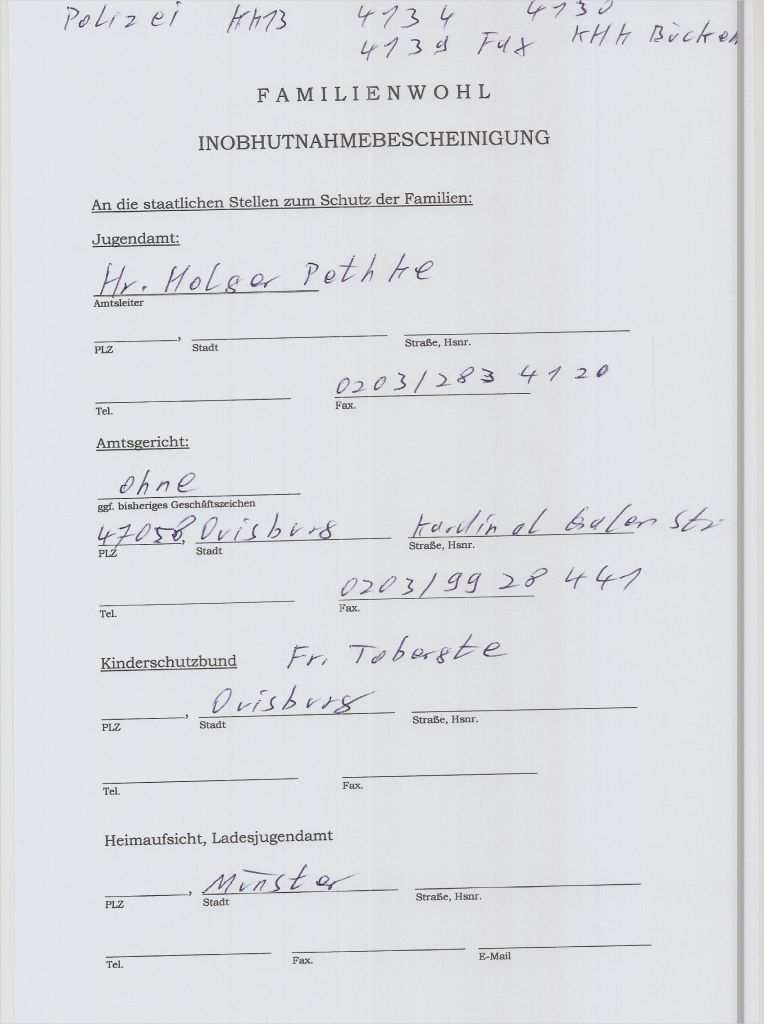 Polizei KK13 4134 4130
4139 Fax KHK Bücken
FAMILIENWOHL
INOBHUTNAHMEBESCHEINIGUNG
An die staatlichen Stellen zum Schutz der Familien:
Jugendamt:
Hr. Holger Pethke
Amtsleiter
PLZ , Stadt Straße, Hsnr.
0203/283 4120
Tel. Fax.
Amtsgericht:
ohne
ggf. bisheriges Geschäftszeichen
47058, Duisburg Kardinal Galen Str.
PLZ Stadt Straße, Hsnr.
0203/99 28 441
Tel. Fax.
Kinderschutzbund Fr. Tobergte
, Duisburg
PLZ Stadt Straße, Hsnr.
Tel. Fax.
Heimaufsicht, Ladesjugendamt
, Münster
PLZ Stadt Straße, Hsnr.
Tel. Fax. E-Mail